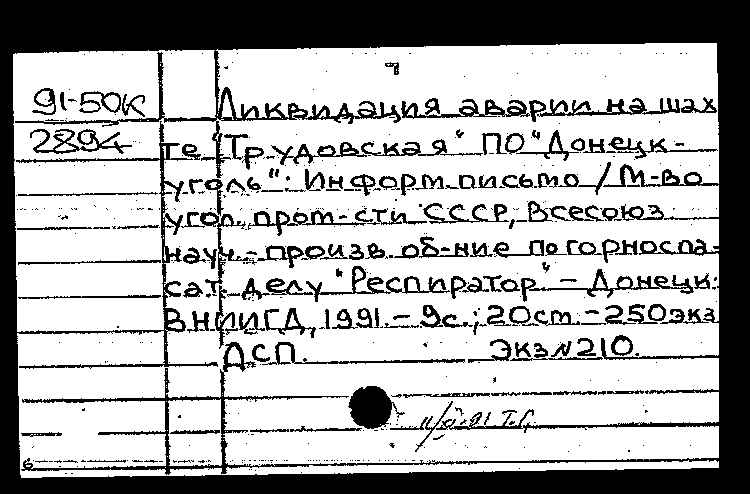 91-50К Ликвидация аварии на шах
2894 те "Трудовская" ПО "Донецк-
уголь": Информ. письмо / М-во
угол. пром-сти СССР, Всесоюз.
науч.-произв. об-ние по горноспа-
сат. делу "Респиратор". - Донецк:
ВНИИГД, 1991. - 9с.; 20см. - 250экз
ДСП. Экз N 210.